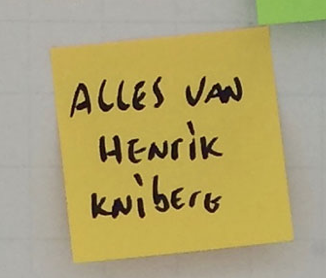 ALLES VAN
HENRIK
KNIBERG